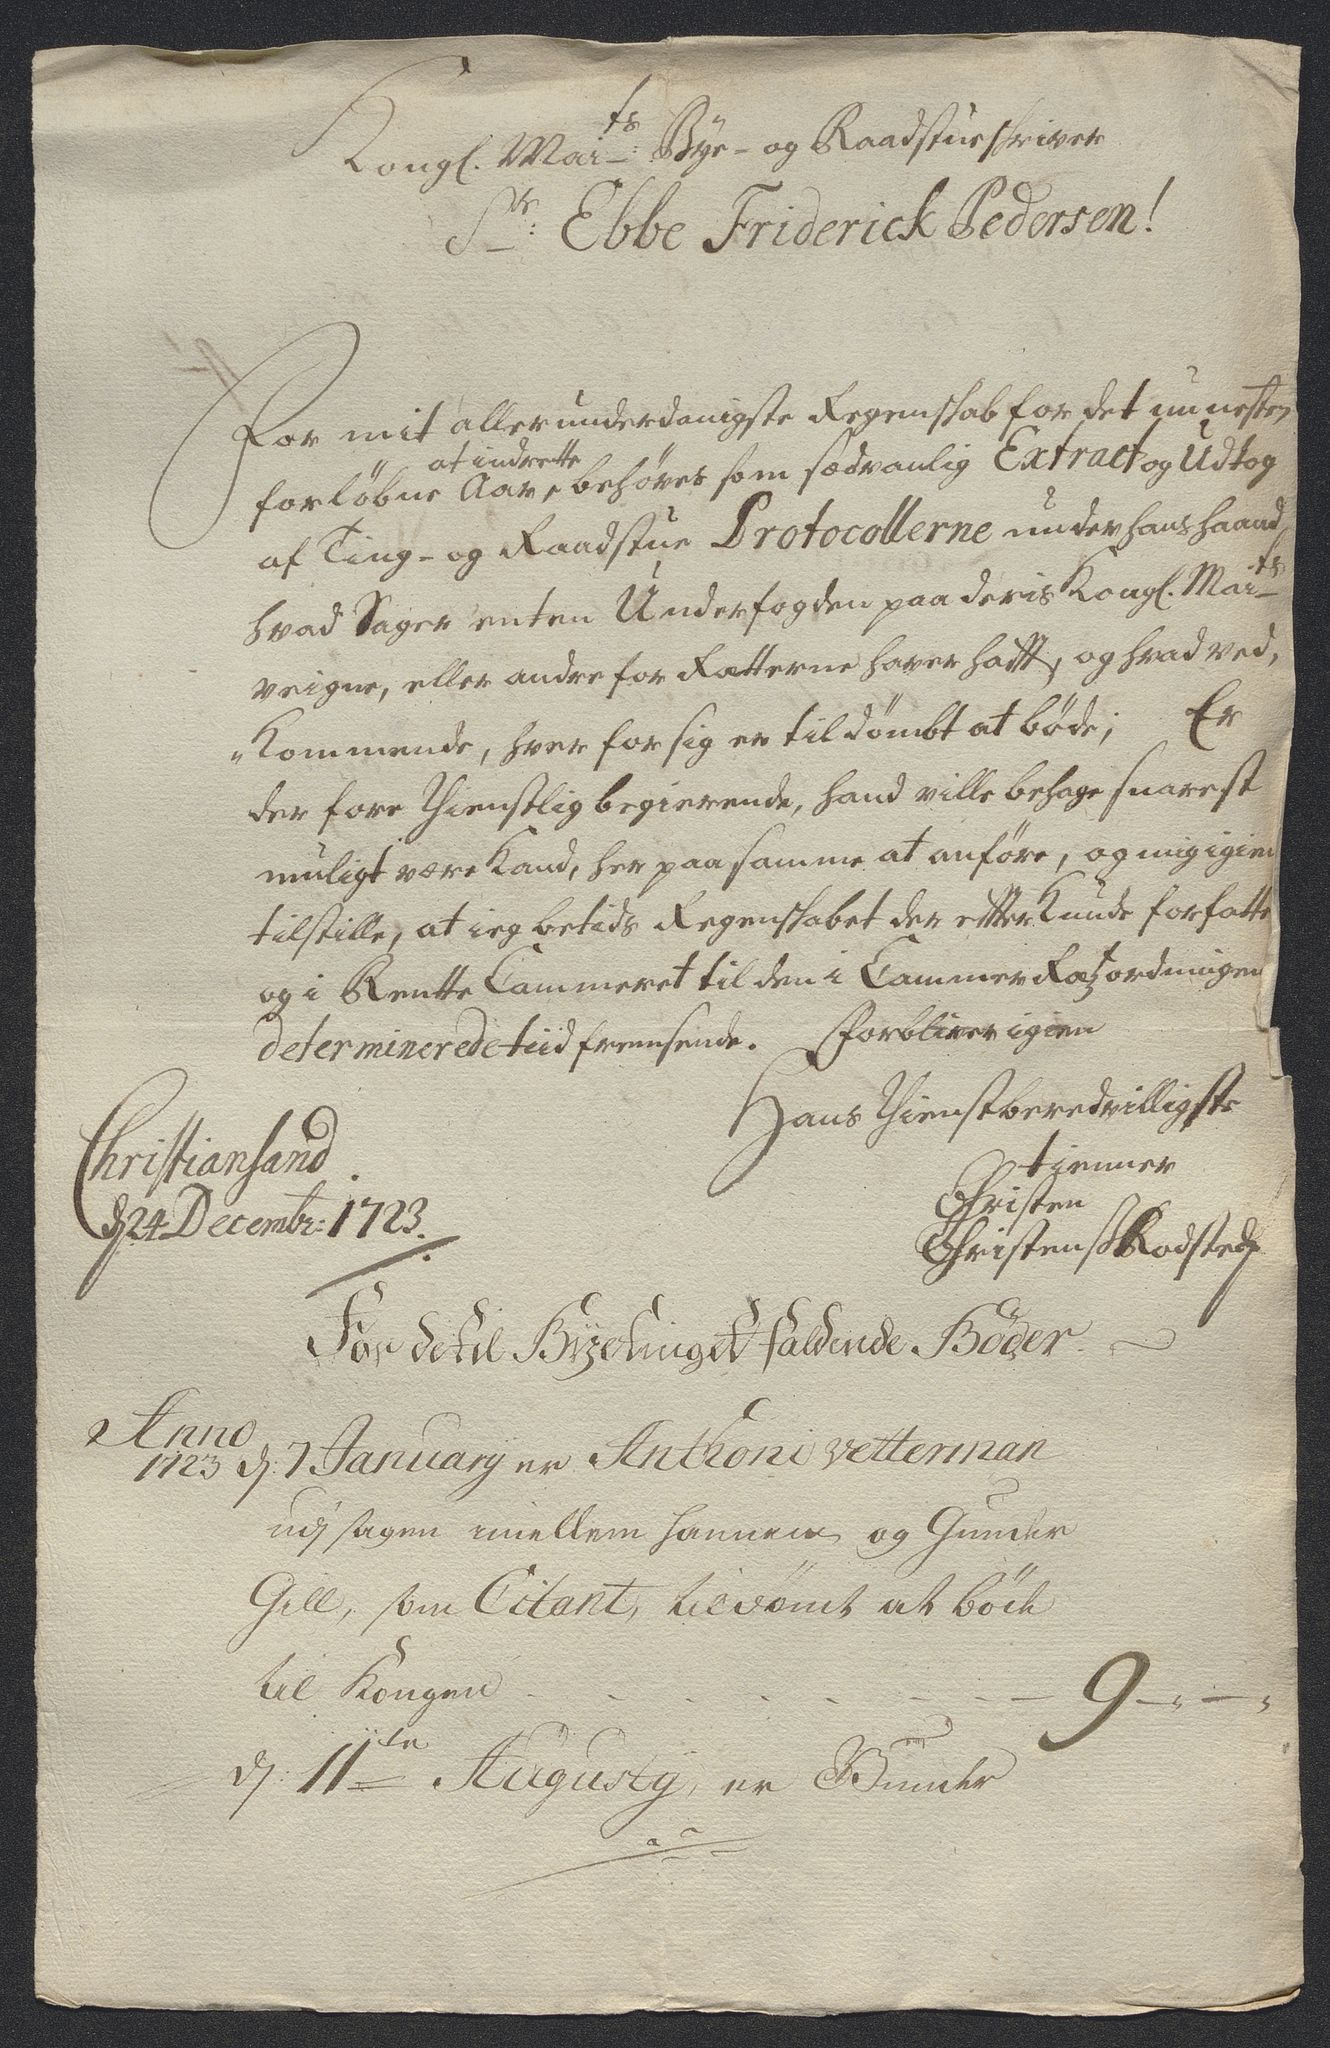 Kongl. Mai:ts Bÿe- og Raadstueskriver
Sr: Ebbe Friderick Pedersen!
For mit allerunderdanigste Regenskab for det nu nesten
forløbne Aar, at indrette behøves som sædvanlig Extract og Udtog
af Ting- og Raadstue Protocollerne under hans haand,
hvad Sager enten Underfogden paa deris Kongl. Mai:ts
veigne, eller andre for Rætterne haver hafft, og hvad ved,
"Kommende, hver for sig er tildømbt at bøde; Er
der fore tienstlig begierende, hand ville behage snarest
muligt være Kand, her paa samme at anføre, og mig igien
tilstille, at ieg betids Regenskabet der effter Kunde forfatte
og i Rentte Cammeret til den i Cammer Rætz ordningen
determinerede tiid fremsende. Forbliver igien
Hans tienstberedvilligste
tienner
Christen
Christens: Rodsted
Christiansand
d 24 Decembr: 1723.
For de til Bÿetinget faldende Bøder.
Anno
1723 d: 7 January er Anthoni vetterman
udj sagen imellem hannem og Gunder
Gill, som Citant, tildømt at bøde
til Kongen - - - - - - - 9 - „ - „
d: 11te Augusty, er Gunder